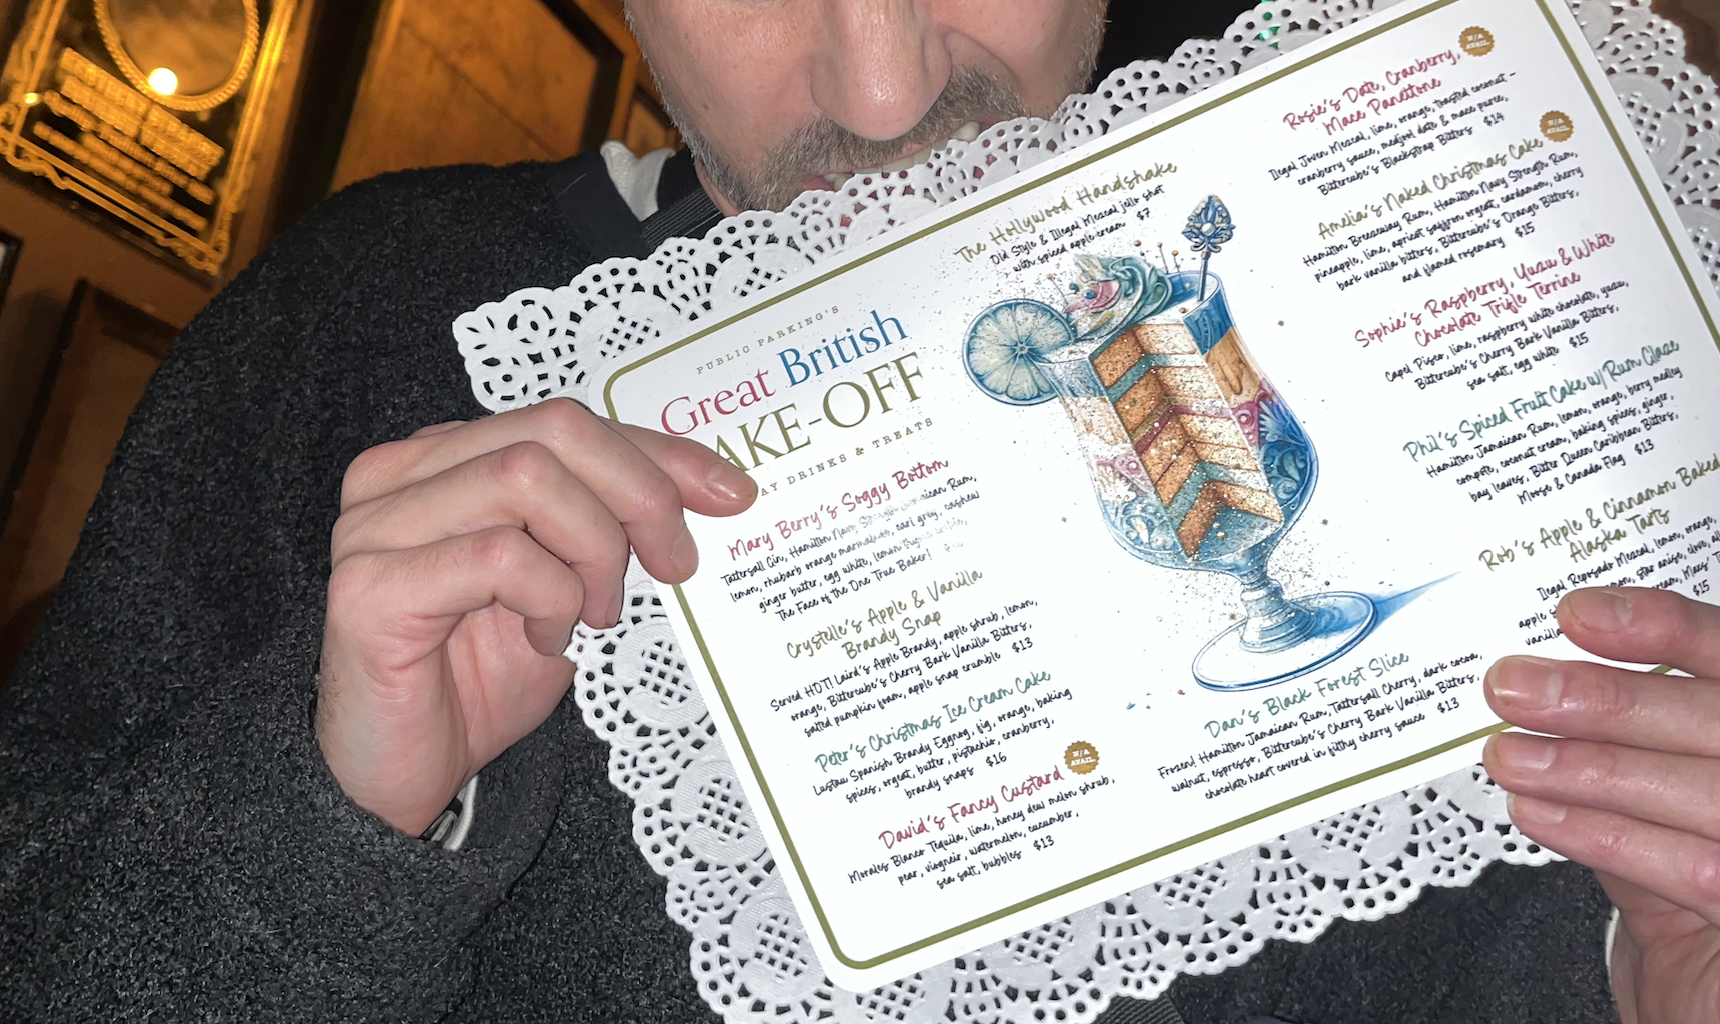 PUBLIC PARKING'S
Great British
AKE-OFF
AY DRINKS & TREATS
Mary Berry's Soggy Bottom
Tattersall Gin, Hamilton Navy Jamaican Rum,
lemon, rhubarb orange marmalade, earl grey, cashew
ginger butter, egg white, lemon thyme
The Face of the One True Baker!
Crystelle's Apple & Vanilla
Brandy Snap
Served HOT! Laird's Apple Brandy, apple shrub, lemon,
orange, Bittercube's Cherry Bark Vanilla Bitters,
salted pumpkin foam, apple snap crumble $13
Peter's Christmas Ice Cream Cake
Lustau Spanish Brandy Eggnog, fig, orange, baking
spices, orgeat, butter, pistachio, cranberry,
brandy snaps $16
David's Fancy Custard
N/A
AVAIL.
Morales Blanco Tequila, lime, honey dew melon shrub,
pear, viogneir, watermelon, cucumber,
sea salt, bubbles $13
The Hollywood Handshake
Old Style & Illegal Mezcal jello shot
with spiced apple cream $7
Dan's Black Forest Slice
Frozen! Hamilton Jamaican Rum, Tattersall Cherry, dark cocoa,
walnut, espresso, Bittercube's Cherry Bark Vanilla Bitters,
chocolate heart covered in filthy cherry sauce $13
Rosie's Date, Cranberry,
Mace Panettone
N/A
AVAIL.
Ilegal Joven Mezcal, lime, orange, toasted coconut -
cranberry sauce, medjool date & mace puree,
Bittercube's Blackstrap Bitters $14
Amelia's Naked Christmas Cake
N/A
AVAIL.
Hamilton Breezeway Rum, Hamilton Navy Strength Rum,
pineapple, lime, apricot saffron orgeat, cardamom, cherry
bark vanilla bitters, Bittercube's Orange Bitters,
and flamed rosemary $15
Sophie's Raspberry, Yuzu & White
Chocolate Trifle Terrine
Capel Pisco, lime, raspberry white chocolate, yuzu,
Bittercube's Cherry Bark Vanilla Bitters,
sea salt, egg white $15
Phil's Spiced Fruit Cake w/ Rum Glaze
Hamilton Jamaican Rum, lemon, orange, berry medley
compote, coconut cream, baking spices, ginger,
bay leaves, Bitter Queen Caribbean Bitters,
Moose & Canada Flag $13
Rob's Apple & Cinnamon Baked
Alaska Tarts
Ilegal Reposado Mezcal, lemon, orange,
apple star anise, clove,
vanilla cream,
$15